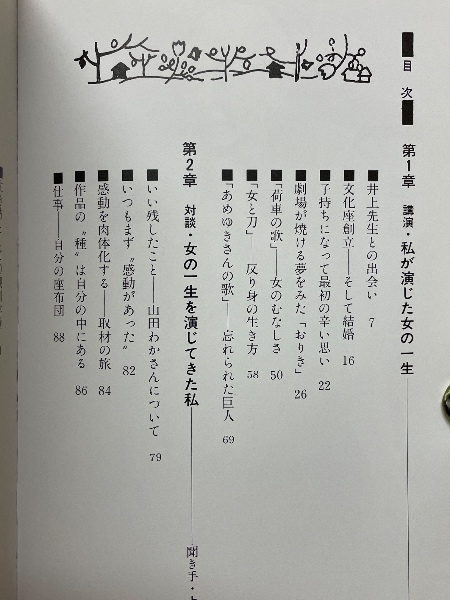 目次
第1章 講演・私が演じた女の一生
■井上先生との出会い 7
■文化座創立——そして結婚 16
■子持ちになって最初の辛い思い 22
■劇場が焼ける夢をみた「おりき」 26
■「荷車の歌」——女のむなしさ 50
■「女と刀」——反り身の生き方 58
■「あめゆきさんの歌」——忘れられた巨人 69
第2章 対談・女の一生を演じてきた私
聞き手・
■いい残したこと——山田わかさんについて 79
■いつもまず〝感動があった〟 82
■感動を肉体化する——取材の旅 84
■作品の〝種〟は自分の中にある 86
■仕事——自分の座布団 88